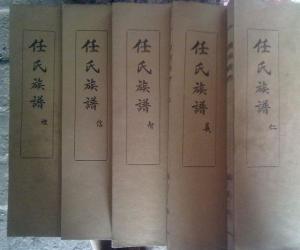 任氏族譜 仁
任氏族譜 義
任氏族譜 智
任氏族譜 信
任氏族譜 禮